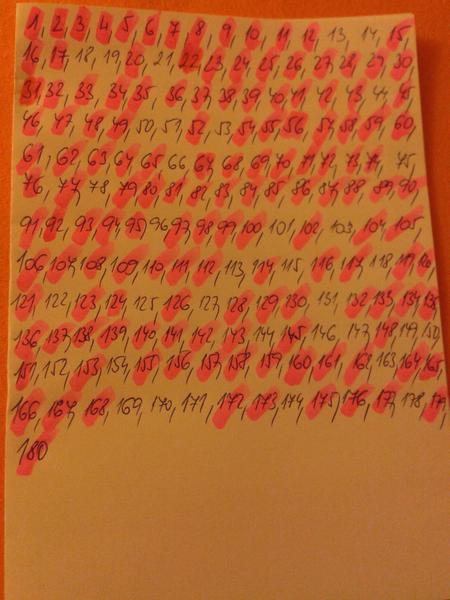 1, 2, 3, 4, 5, 6, 7, 8, 9, 10, 11, 12, 13, 14, 15,
16, 17, 18, 19, 20, 21, 22, 23, 24, 25, 26, 27, 28, 29, 30,
31, 32, 33, 34, 35, 36, 37, 38, 39, 40, 41, 42, 43, 44, 45,
46, 47, 48, 49, 50, 51, 52, 53, 54, 55, 56, 57, 58, 59, 60,
61, 62, 63, 64, 65, 66, 67, 68, 69, 70, 71, 72, 73, 74, 75,
76, 77, 78, 79, 80, 81, 82, 83, 84, 85, 86, 87, 88, 89, 90,
91, 92, 93, 94, 95, 96, 97, 98, 99, 100, 101, 102, 103, 104, 105,
106, 107, 108, 109, 110, 111, 112, 113, 114, 115, 116, 117, 118, 119, 120,
121, 122, 123, 124, 125, 126, 127, 128, 129, 130, 131, 132, 133, 134, 135,
136, 137, 138, 139, 140, 141, 142, 143, 144, 145, 146, 147, 148, 149, 150,
151, 152, 153, 154, 155, 156, 157, 158, 159, 160, 161, 162, 163, 164, 165,
166, 167, 168, 169, 170, 171, 172, 173, 174, 175, 176, 177, 178, 179,
180